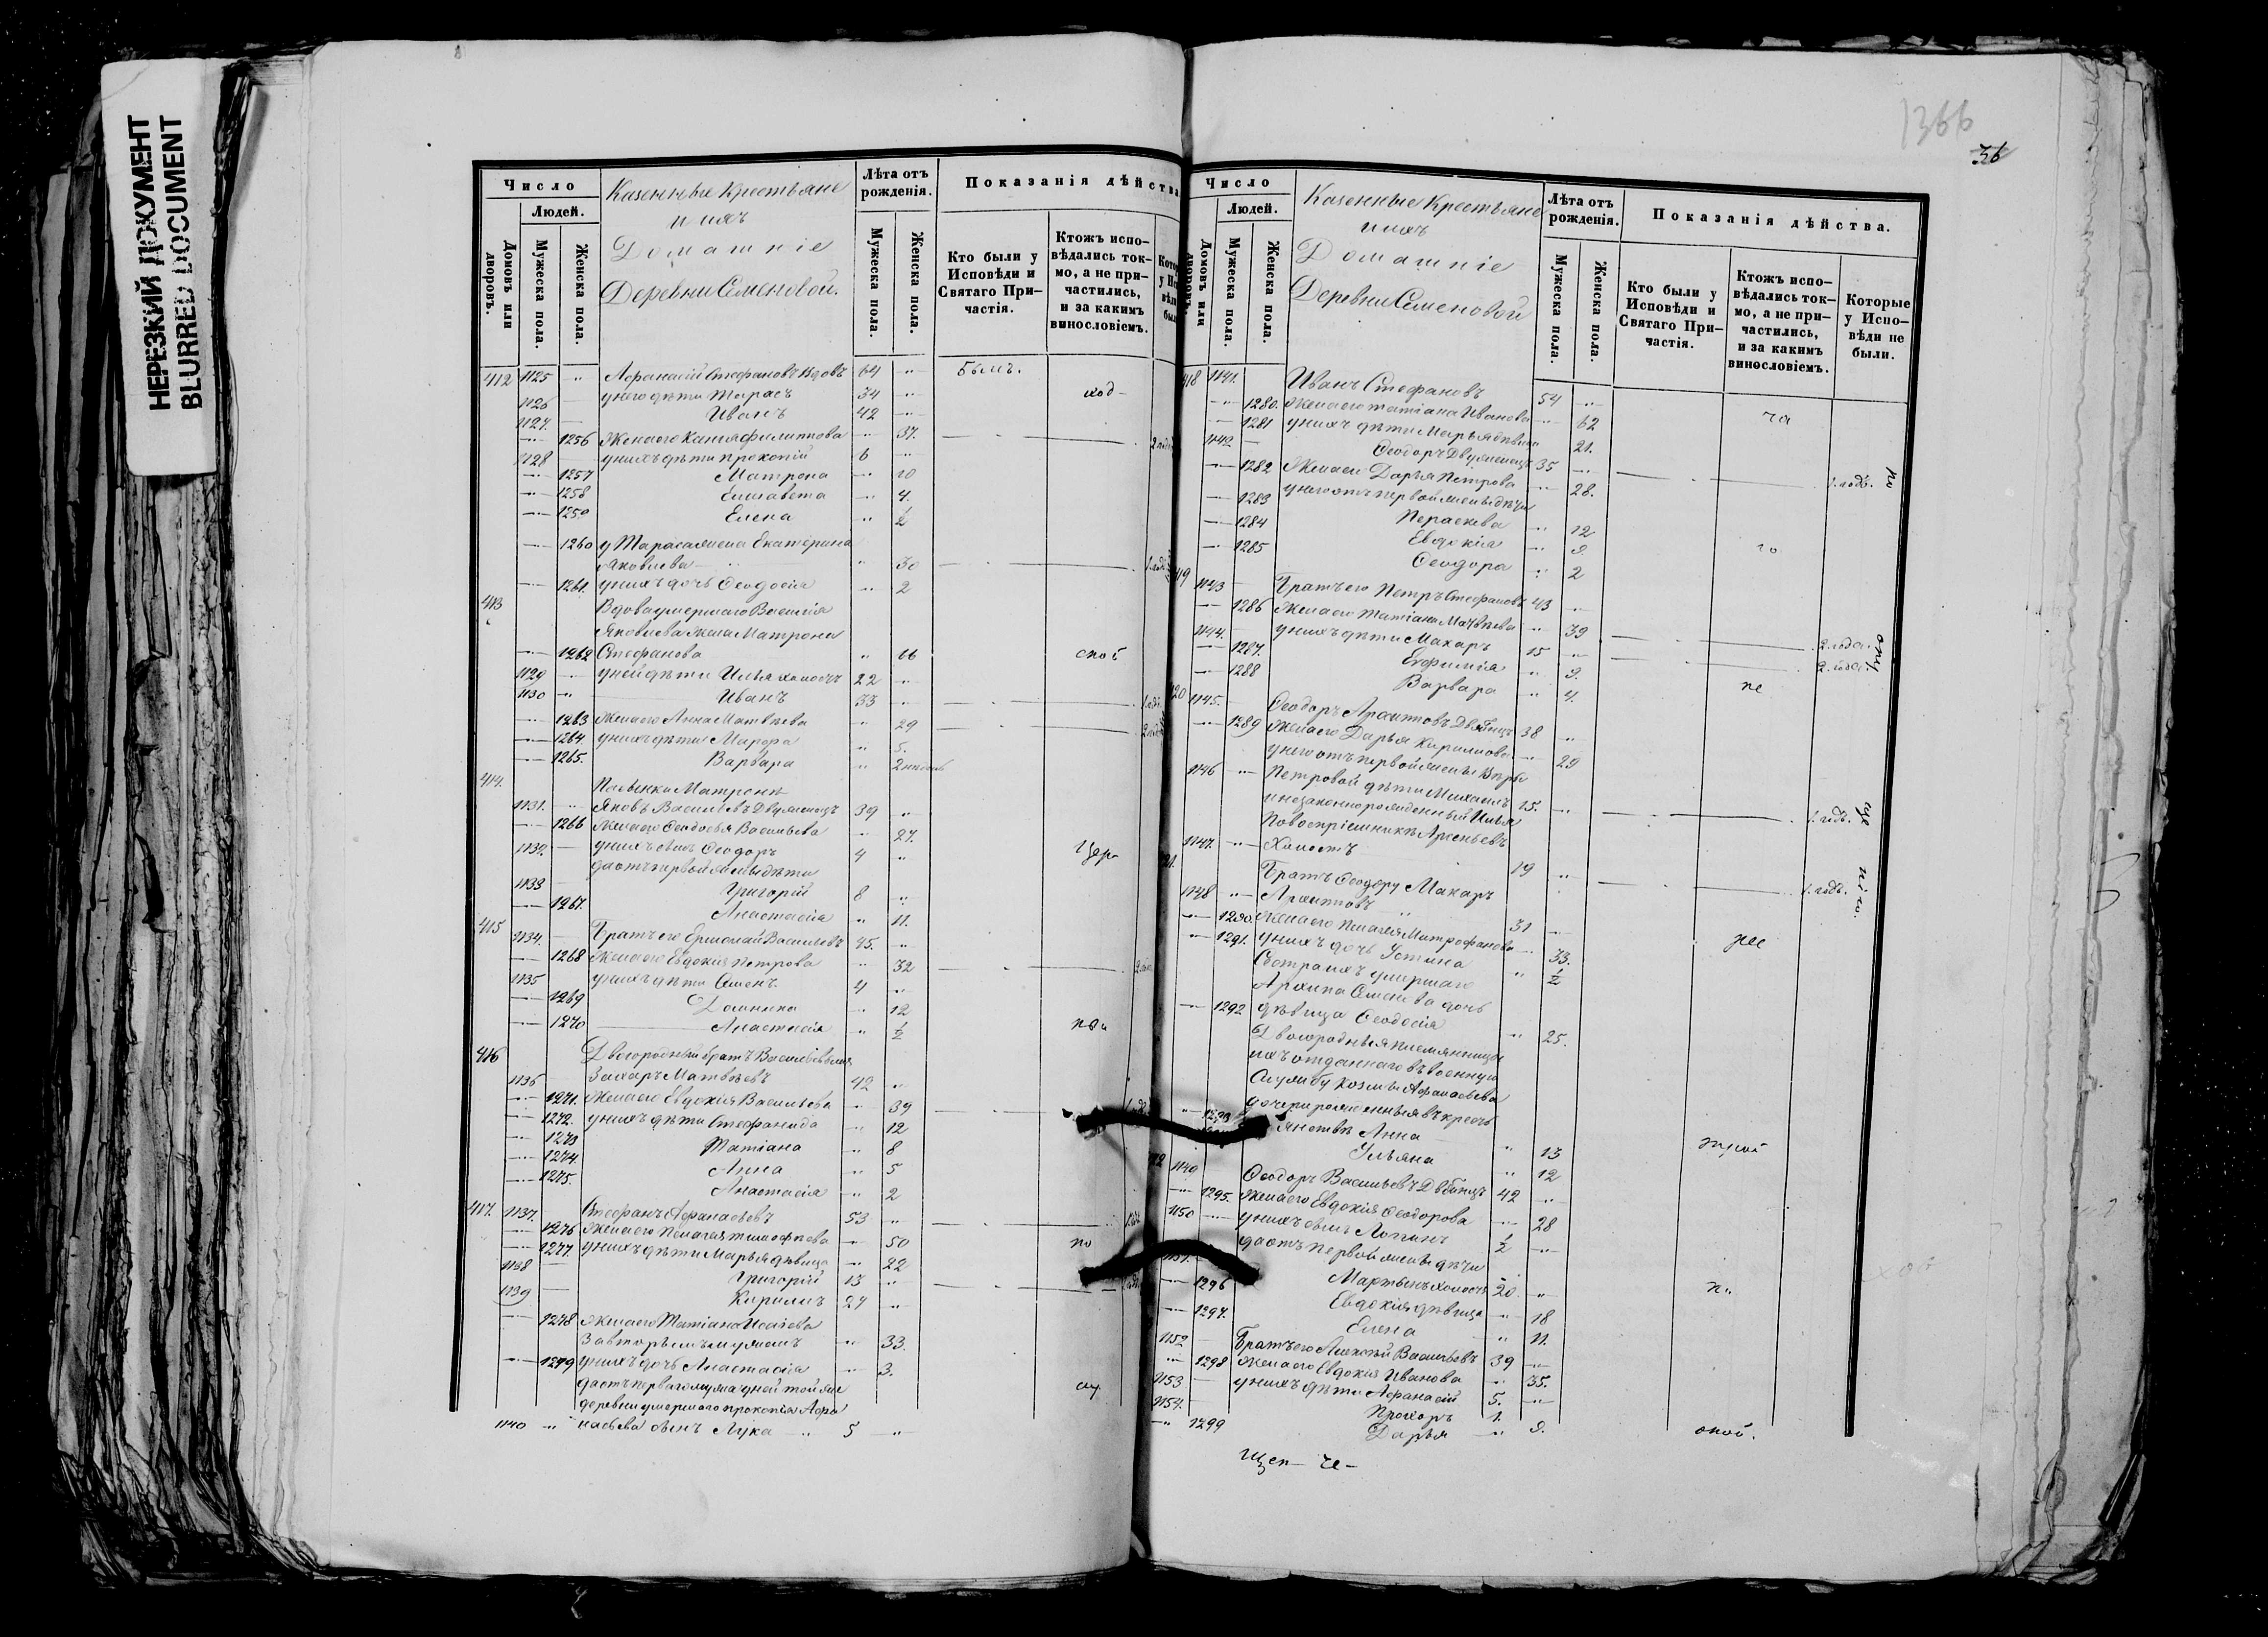 НЕРЕЗКИЙ ДОКУМЕНТ
BLURRED DOCUMENT
Число
Людей.
Домовъ или дворовъ.
Мужеска пола.
Женска пола.
Казенные Крестьяне
и ихъ
Домашніе
Деревни Семеновой.
Лѣта отъ рожденія.
Мужеска пола.
Женска пола.
Показанія дѣйства
Кто были у Исповѣди и Святаго Причастія.
Ктожъ исповѣдались токмо, а не причастились, и за какимъ винословіемъ.
412 1125 „ Афанасій Стефановъ вдовъ 64 „ Былъ.
1126 — у него дѣти Тарасъ 34 „
1127. — Иванъ 42 „
1256 Жена его Филиппова „ 37.
1128 у нихъ дѣти Прокопій 6 „
1257 Матрона „ 10
1258 Елисавета „ 4.
1259 Елена „ ½
1260 у Тараса жена Екатерина
Яковлева „ 30
1261. у нихъ дочь Феодосія „ 2
413 Вдова умершаго Василія
Яковлева жена Матрона
1262 Стефанова „ 66
1129 у ней дѣти Илья холостъ 22 „
1130 Иванъ 33 „
1263 Жена его Анна Матвѣева „ 29
1264. у нихъ дѣти Марфа „ 5.
1265. Варвара „ 2
414. Матроны
1131. Яковъ Васильевъ Двуженецъ 39 „
1266 Жена его Феодосья Васильева „ 27.
1132. у нихъ сынъ Феодоръ 4 „
да отъ первой жены дѣти
1133 Григорій 8 „
1267. Анастасія „ 11.
415 1134. Братъ его Ермолай Васильевъ 45. „
1268 Жена его Евдокія Петрова „ 32
1135 у нихъ дѣти Семенъ 4 „
1269 Домника „ 12
1270 Анастасія „ ½
416 Двоюродный братъ
1136 Захаръ Матвѣевъ 42 „
1271. Жена его Евдокія Васильева „ 39
1272. у нихъ дѣти Стефанида „ 12
1273 Татіана „ 8
1274. Анна „ 5
1275. Анастасія „ 2
417. 1137. Стефанъ Афанасьевъ 53 „
1276 Жена его Пелагія Тимофѣева „ 50
1277. у нихъ дѣти Марья дѣвица „ 22
1138 Григорій 13 „
1139 Кириллъ 24 „
1278 Жена его Татіана Исаева
за вторымъ мужемъ „ 33.
1279 у нихъ дочь Анастасія „ 3.
да отъ перваго мужа у ней той же
деревни умершаго Прокопія Афа
1140 „ насьева сынъ Лука 5 „
1366
36
Число
Людей.
Домовъ или дворовъ.
Мужеска пола.
Женска пола.
Казенные Крестьяне
и ихъ
Домашніе
Деревни Семеновой
Лѣта отъ рожденія.
Мужеска пола.
Женска пола.
Показанія дѣйства.
Кто были у Исповѣди и Святаго Причастія.
Ктожъ исповѣдались токмо, а не причастились, и за какимъ винословіемъ.
Которые у Исповѣди не были.
418 1141. Иванъ Стефановъ 54 „
1280. Жена его Татіана Иванова „ 62
1281 у нихъ дѣти Марья дѣвица 21.
1142 Феодоръ Двуженецъ 35 „
1282 Жена его Дарья Петрова „ 28. 1. годъ.
у него отъ первой жены дѣти
1283 Параскева „ 12
1284 Евдокія „ 9
1285 Феодора „ 2
419 1143 Братъ его Петръ Стефановъ 43 „
1286 Жена его Татіана Матвѣева „ 39
1144. у нихъ дѣти Макаръ 15 „ 2. года.
1287. Евфимія „ 9. 2. года
1288 Варвара „ 4.
420 1145. Феодоръ Архиповъ 38 „
1289 Жена его Дарья Кириллова „ 29
у него отъ первой жены
1146 Петровой дѣти Михаилъ 15. „
и незаконнорожденный Илья 1. годъ.
По воспріемникѣ Арсеньевъ
1147. Холостъ 19 „
Братъ Феодору Макаръ
1148 Архиповъ 31 „ 1. годъ.
1290. Жена его Пелагія Митрофанова „ 33.
1291. у нихъ дочь Устина „ ½
Сестра ихъ умершаго
Архипа Семенова дочь
1292 дѣвица Феодосія „ 25.
Двоюродныя племянницы
ихъ отданнаго въ военную
Службу Козмы Афанасьева
дочери рожденныя въ кресть
1293 янствѣ Анна „ 13
Ульяна „ 12
1149 Феодоръ Васильевъ 42 „
1295. Жена его Евдокія Феодорова „ 28
1150 у нихъ сынъ Логинъ ½ „
да отъ первой жены дѣти
1151. Мартынъ холостъ 20. „
1296 Евдокія дѣвица „ 18
1297. Елена „ 11.
1152 Братъ его Алексѣй Васильевъ 39 „
1298 Жена его Евдокія Иванова „ 35.
1153 у нихъ дѣти Афанасій 5. „
1154. Прохоръ 1. „
1299 Дарья „ 9.